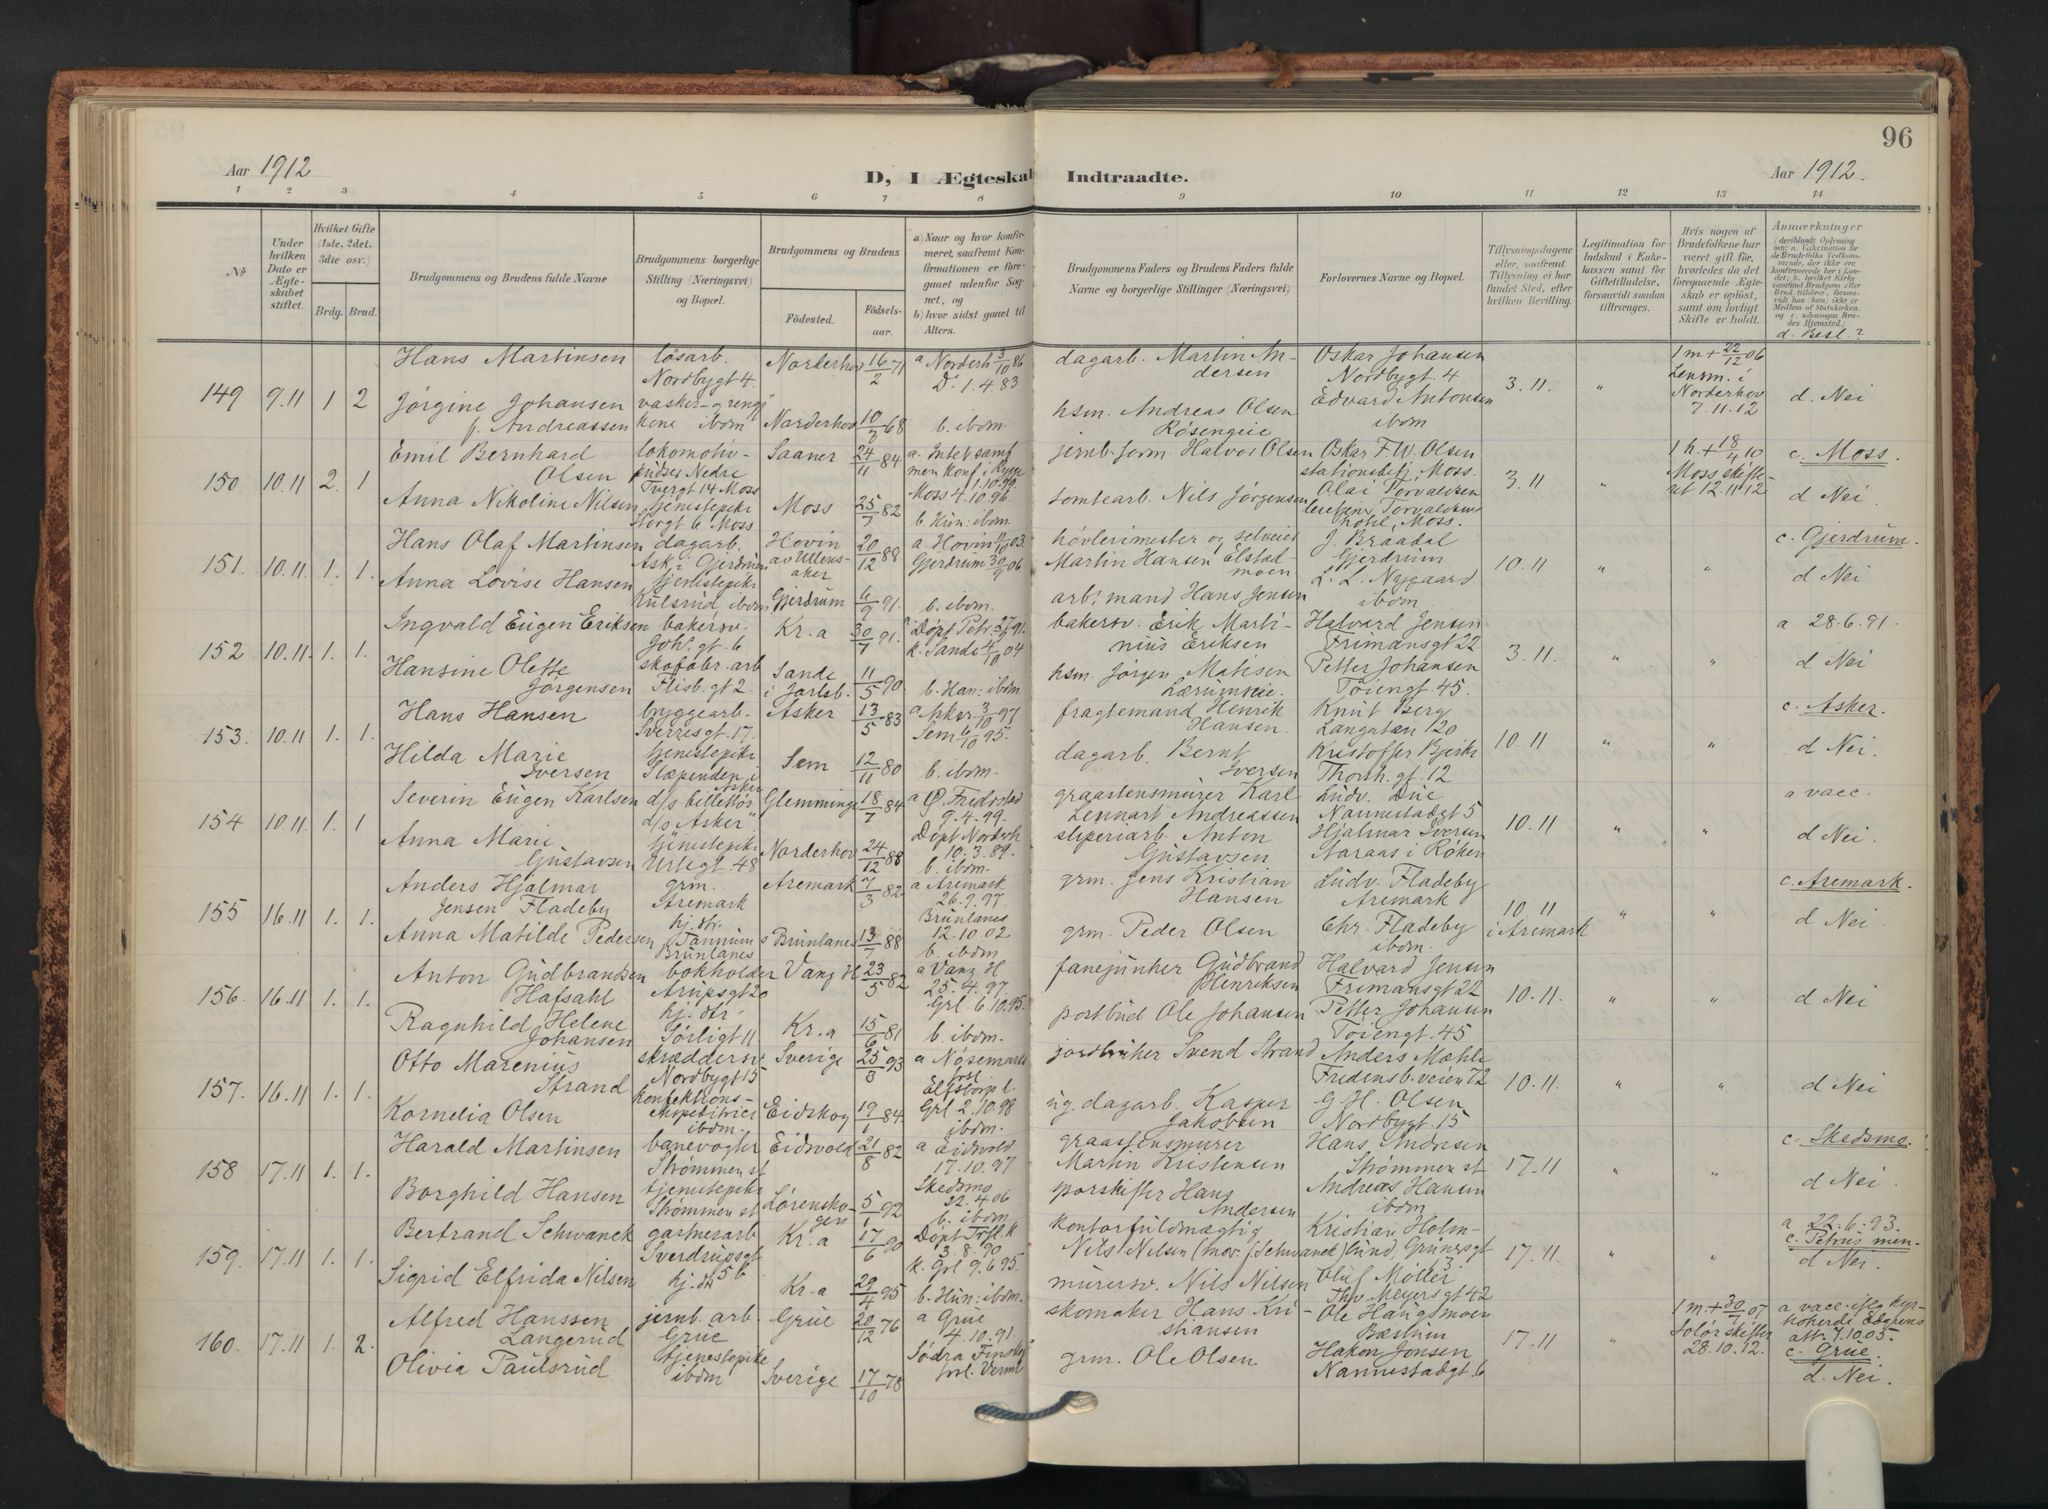 96
Aar 1912
D, I Ægteskab Indtraadte.
Aar 1912.
1 2 3 4 5 6 7 8 9 10 11 12 13 14
No
Under hvilken Dato er Ægteskabet stiftet.
Hvilket Gifte (1ste, 2det, 3die osv.)
Brdg. Brud.
Brudgommens og Brudens fulde Navne
Brudgommens borgerlige Stilling (Næringsvei) og Bopæl.
Brudgommens og Brudens
Fødested. Fødselsaar.
a) Naar og hvor konfirmeret, saafremt Konfirmationen er foregaaet udenfor Sognet, og
b) hvor sidst gaaet til Alters.
Brudgommens Faders og Brudens Faders fulde Navne og borgerlige Stillinger (Næringsvei)
Forlovernes Navne og Bopæl.
Tillysningsdagene eller, saafremt Tillysning ei har fundet Sted, efter hvilken Bevilling.
Legitimation for Indskud i Enkekassen samt for Giftetilladelse, forsaavidt saadan tiltrænges.
Hvis nogen af Brudefolkene har været gift før, hvorledes da det foregaaende Ægteskab er opløst, samt om lovligt Skifte er holdt.
Anmærkninger
d. Besl.?
149 9.11 1 2
Hans Martinsen løsarb. Nordbygt 4. Norderhov 16/2 71 a Norderh 3/10 86 D. 1.4 83
dagarb. Martin Andersen Oskar Johansen Nordbygt. 4 3.11. " 1 m + 22/12 06 Lensm. i Norderhov 7.11.12 d. Nei
Jørgine Johansen f. Andreassen vasker- og rengj kone ibdm Norderhov 10/ 68 b. ibdm.
hsm. Andreas Olsen Røsengeie Edvard Antonsen ibdm
150 10.11 2. 1.
Emil Bernhard Olsen lokomotivpudser Nedre Tvergt 14 Moss Saaner 24/11 84 a. Intet samf men konf i Rygge 1.10.99.
jernb. form. Halvor Olsen Oskar F.W. Olsen stationsbetj. Moss. 3.11 " 1 h + 18/4 10 Moss skifteret 12.11.12 c. Moss. d Nei
Anna Nikoline Nilsen tjenestepike Storgt 6 Moss Moss 25/7 82 Moss 4.10.96. b. Hun: ibdm.
tomtearb. Nils Jørgensen Olai Torvaldsen Torvaldsens hotel, Moss.
151. 10.11 1. 1.
Hans Olaf Martinsen dagarb. Ask i Gjerdrum Hovin av Ullensaker 20/12 88 a. Hovin 11/10 03.
høvlerimester og selveier Martin Hansen Elstadmoen J. Braadal Gjerdrum 10.11 " " c. Gjerdrum. d Nei
Anna Lovise Hansen tjenestepike Kulsrud ibdm Gjerdrum 6/9 91. Gjerdrum 30/9 06 b. ibdm.
arb: mand Hans Jensen L. L. Nygaard ibdm.
152 10.11. 1. 1.
Ingvald Eugen Eriksen bakersv. Joh. gt. 6 Kr.a 30/ 91. Døpt Petr. 27/ 91.
bakersv. Erik Martinius Eriksen Halvard Jensen Frimansgt 22 3.11. " " a. 28.6.91. d Nei
Hansine Olette Jørgensen skofabr. arb Flisb. gt 2. Sande i Jarlsb. 11/5 90 k. Sande 4/10 04 b. Han: ibdm.
hsm. Jørgen Matisen Lærumseie. Petter Johansen Tøiengt. 45.
153. 10.11 1. 1.
Hans Hansen byggearb. Sverresgt. 17. Asker 13/5 83 a Asker 3/10 97
fragtemand Henrik Hansen. Knut Berg Langaten 120 10.11 " " c. Asker. d Nei
Hilda Marie Iversen tjenestepike Slæpenden i Asker Sem 12/11 80 Sem 6/10 95. b. ibdm.
dagarb. Bernt Iversen Kristoffer Bjerke Thorh. gt. 12
154 10.11 1. 1
Severin Eugen Karlsen d/s billettør d/s "Asker" Glemminge 18/7 84 a Ø. Fredrstad 9.4.99.
graastensmurer Karl Lennart Andreassen Ludv. Due Nannestadgt 5 10.11 " " a vacc. d Nei
Anna Marie Gustavsen tjenestepike Urtegt. 48 Norderhov 24/12 88 Døpt Norderh 10.3.89. b. ibdm.
sliperiarb. Anton Gustavsen Hjalmar Iversen Aaraas i Røken
155 16.11 1. 1.
Anders Hjalmar Jensen Fladeby grm. Aremark Aremark 7/3 82 a Aremark 26.9.97.
grm. Jens Kristian Hansen Ludv. Fladeby Aremark 10.11 i Aremark " " c. Aremark. d Nei
Anna Matilde Pedersen hj. dtr. Tannum Brunlanes Brunlanes 13/7 88 Brunlanes 12.10.02 b. ibdm.
grm. Peder Olsen Chr. Fladeby ibdm.
156. 16.11 1. 1.
Anton Gudbrandsen Hafsahl bokholder Arupsgt 20 Vang H 23/5 82 a Vang H 25.4.97.
fanejunker Gudbrand Henriksen Halvard Jensen Frimansgt 22 10.11. " " d Nei
Ragnhild Helene Johansen hj. dtr. Sørligt 11 Kr.a 15/6 81 Grl. 6.10.95. b. ibdm.
postbud Ole Johansen Petter Johansen Tøiengt 45
157. 16.11 1. 1.
Otto Marenius Strand skræddersv Nordbygt 15 Sverige 25/8 93 a Nøsemark
jordbruker Svend Strand Anders Mæhle Fredensb.veien 72 10.11. " " d Nei
Kornelia Olsen konfektions-ekspeditrice ibdm. Eidskog 19/1 84 Grl 2.10.98 ibdm.
ug. dagarb. Kasper Jakobsen G. H. Olsen Nordbygt 15
158 17.11 1. 1.
Harald Martinsen banevogter Strømmen st Eidsvold 21/8 82 a Eidsvold 17.10.97
graastensmurer Martin Kristensen Hans Andresen Strømmen st 17.11 " " c. Skedsmo. d Nei.
Borghild Hansen tjenestepike Strømmen st Lørenskogen 5/1 92 Skedsmo 22.4.06 b. ibdm
sporskifter Hans Andersen Andreas Hansen ibdm
159. 17.11 1. 1.
Bertrand Schwanck gartnerarb Sverdrupsgt 5b Kr.a 17/6 90 Døpt Trfl. k 3.8.90
kontorfuldmægtig Nils Nilsen (mor: f Schwanck) Kristian Holm Lund, Grünersgt 3 17.11 " " a 22.6.93. c. Petrus men. d Nei.
Sigrid Elfrida Nilsen hj. dtr Kr.a 29/4 95 k. Grl 9.6 95. b. Hun: ibdm.
murersv. Nils Nilsen Oluf Møller Thv. Meyersgt 42
160. 17.11 1. 2.
Alfred Hanssen Langerud jernb. arb. Grue Grue 20/12 76 a Grue 4.10.91
skomaker Hans Kristiansen Ole Haugsmoen Bærum 17.11 " 1 m + 30/ 07 Solør skifter 28.10.12. a vacc. iflg kyrkoherde Edgrens att. 7.10.05. c. Grue. d. Nei.
Olivia Paulsrud tjenestepike ibdm Sverige 17/10 78 Södra Finskog
grm. Ole Olsen Hakon Jonsen Nannestadgt. 6